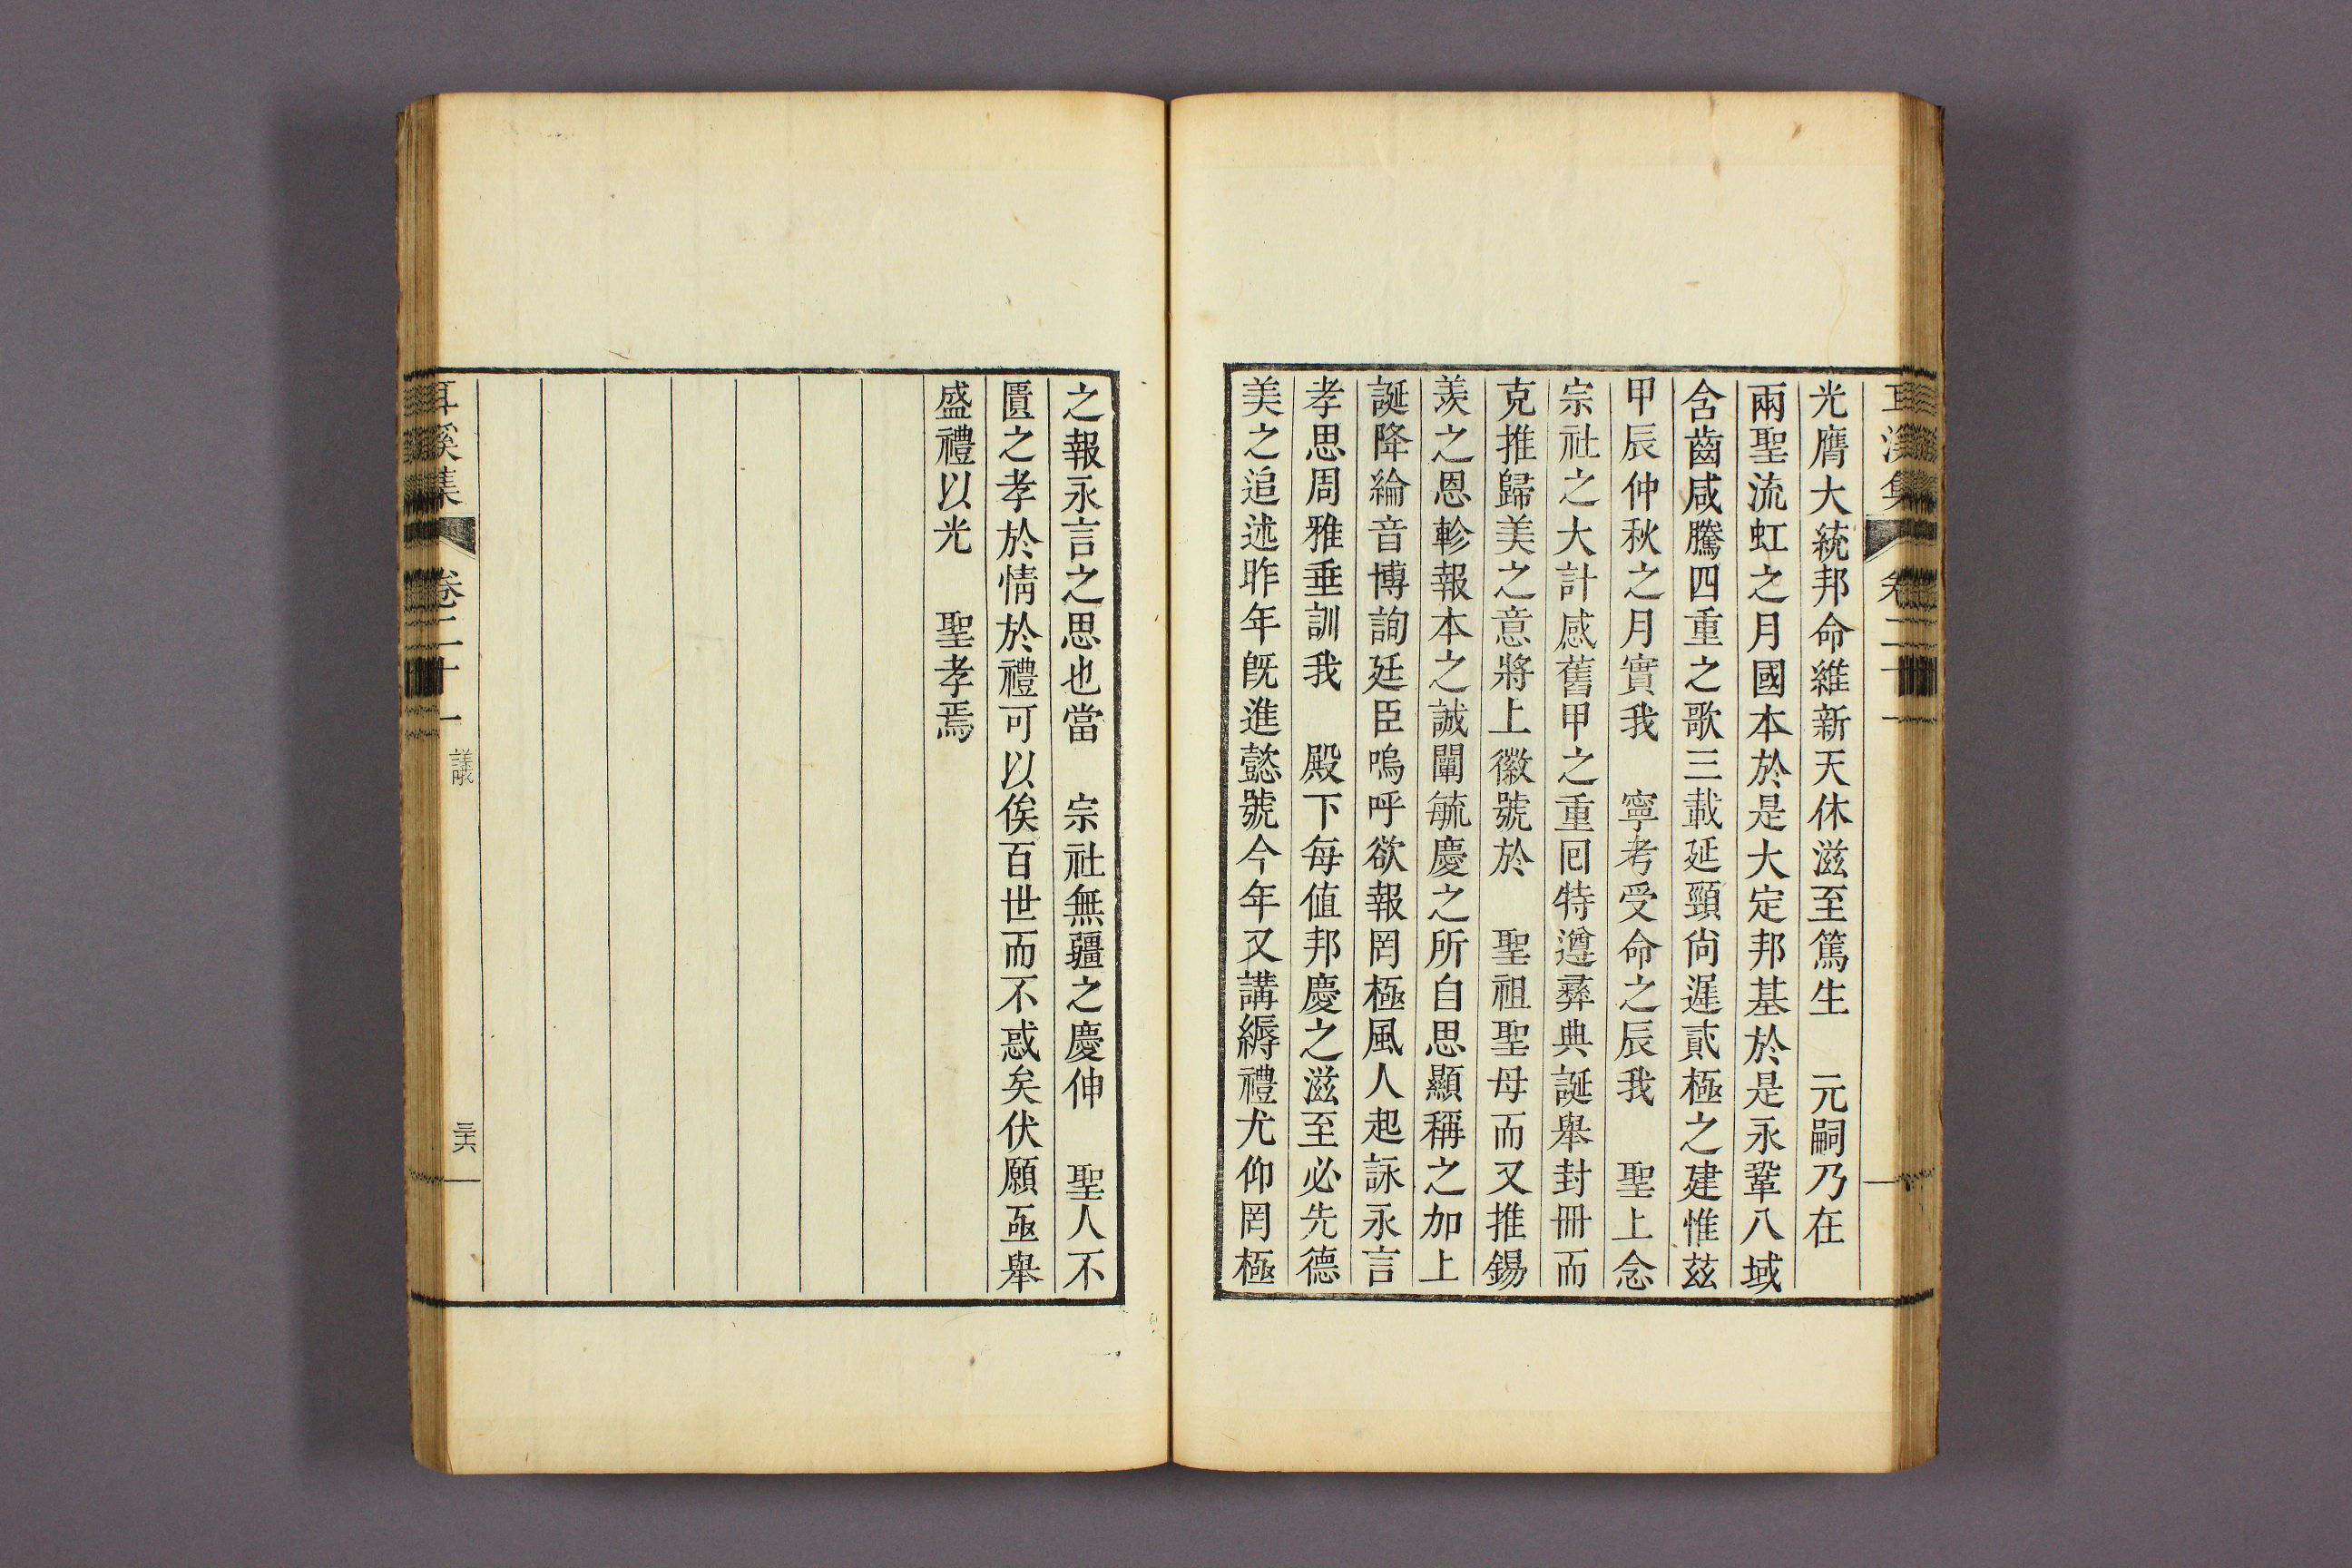 光膺大統邦命維新天休滋至篤生　元嗣乃在
兩聖流虹之月國本於是大定邦基於是永鞏八域
含齒咸騰四重之歌三載延頸尙遲貳極之建惟玆
甲辰仲秋之月實我　寧考受命之辰我　聖上念
宗社之大計感舊甲之重回特遵彝典誕舉封冊而
克推歸美之意將上徽號於　聖祖聖母而又推錫
羨之恩軫報本之誠闡毓慶之所自思顯稱之加上
誕降綸音博詢廷臣嗚呼欲報罔極風人起詠永言
孝思周雅垂訓我　殿下每值邦慶之滋至必先德
美之追述昨年旣進懿號今年又講縟禮尤仰罔極
之報永言之思也當　宗社無疆之慶伸　聖人不
匱之孝於情於禮可以俟百世而不惑矣伏願亟舉
盛禮以光　聖孝焉
耳溪集　卷二十一　議　三六